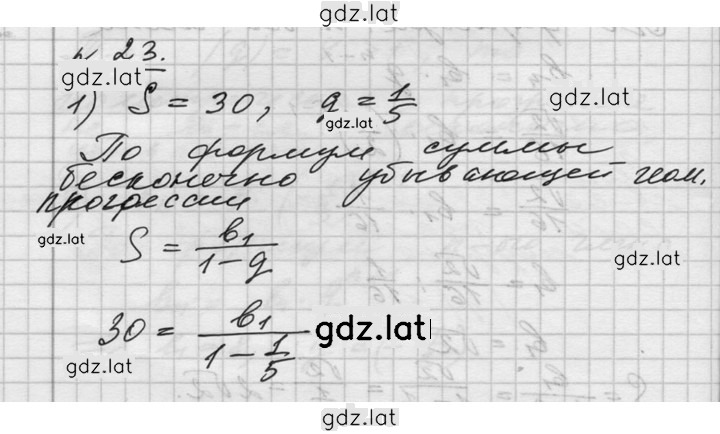 gdz.lat
№ 23.
gdz.lat
1) S = 30, q = 1/5
gdz.lat
gdz.lat
По формуле суммы
бесконечно убывающей геом.
прогрессии
gdz.lat
S = b₁/(1 - q)
gdz.lat
30 = b₁/(1 - 1/5)
gdz.lat
gdz.lat
gdz.lat